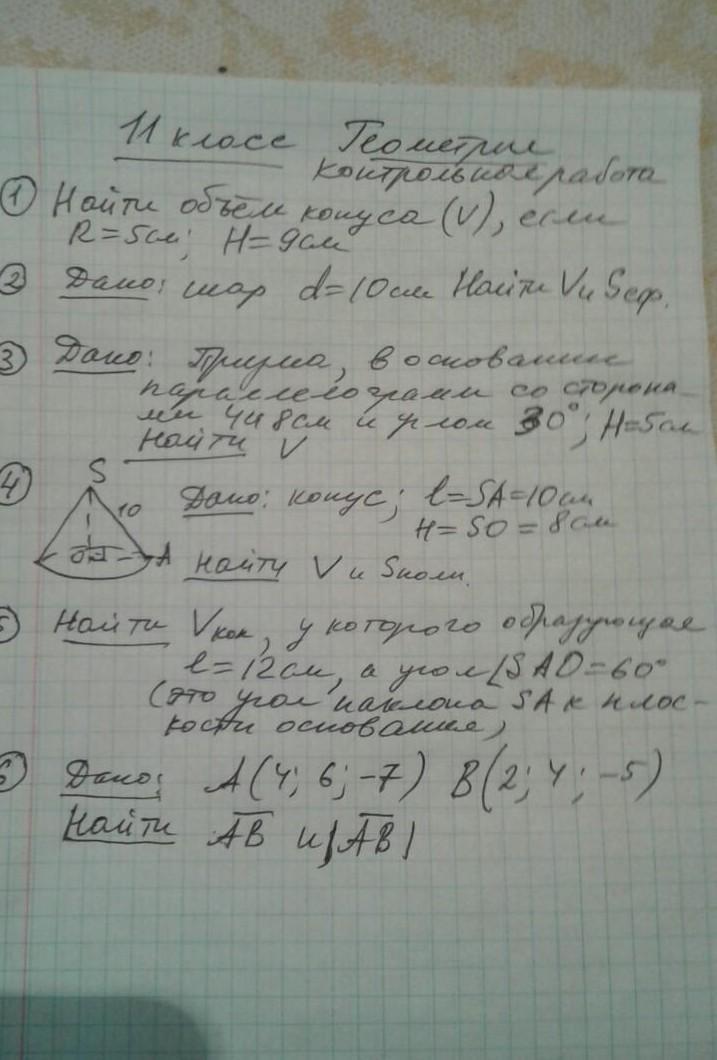 11 классе Геометрия
контрольная работа
① Найти объём конуса (V), если
R=5см; H=9см
② Дано: шар d=10см Найти V и Sсф.
③ Дано: Призма, в основании
параллелограмм со сторона-
ми 4и 8см и углом 30°; H=5см
Найти V
④ S
10
Дано: конус; l=SA=10см
H=SO=8см
O A
Найти V и Sполн.
5 Найти Vкон, у которого образующая
l=12см, а угол ∠SAO=60°
(это угол наклона SA к плос-
кости основания)
6 Дано: A(4; 6; -7) B(2; 4; -5)
Найти AB и |AB|